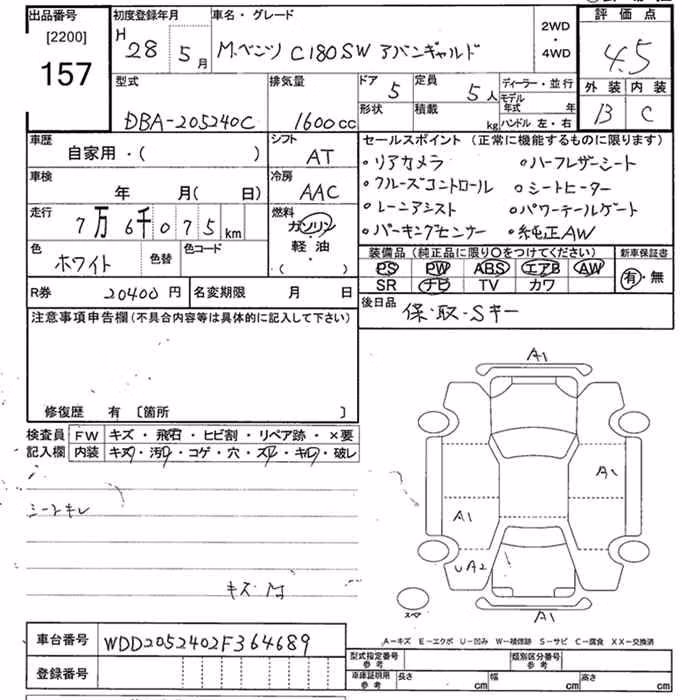 出品番号 初度登録年月 車名・グレード 評価点
[2200] H 28 5月 M.ベンツ C180SW アバンギャルド 2WD・4WD 4.5
157
型式 排気量 ドア 5 定員 5人 ディーラー・並行 外装 内装
DBA-205240C 1600cc 形状 積載 kg モデル年式 年 B C
ハンドル 左・右
車歴 自家用・( ) シフト AT セールスポイント (正常に機能するものに限ります)
・リアカメラ ・ハーフレザーシート
車検 年 月( 日) 冷房 AAC ・クルーズコントロール ・シートヒーター
走行 7万6千075km 燃料 ガソリン ・レーンアシスト ・パワーテールゲート
軽油 ・パーキングセンサー ・純正AW
色 ホワイト 色替 色コード ・( ) 装備品 (純正品に限り○をつけてください) 新車保証書
PS PW ABS エアB AW 有・無
R券 20400円 名変期限 月 日 SR ナビ TV カワ
注意事項申告欄(不具合内容等は具体的に記入して下さい) 後日品 保・取・Sキー
修復歴 有 [箇所 ]
検査員 FW キズ・飛石・ヒビ割・リペア跡・×要
記入欄 内装 キズ・汚レ・コゲ・穴・スレ・キレ・破レ
シートキレ
A1
A1
A1
UA2
A1
A-キズ E-エクボ U-凹み W-補修跡 S-サビ C-腐食 XX-交換済
車台番号 WDD2052402F364689
型式指定番号 参考 類別区分番号 参考
登録番号 車庫証明用 参考 長さ cm 幅 cm 高さ cm